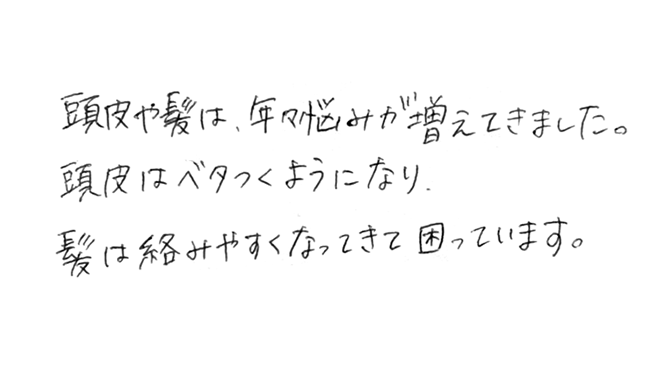 頭皮や髪は、年々悩みが増えてきました。
頭皮はベタつくようになり、
髪は絡みやすくなってきて困っています。